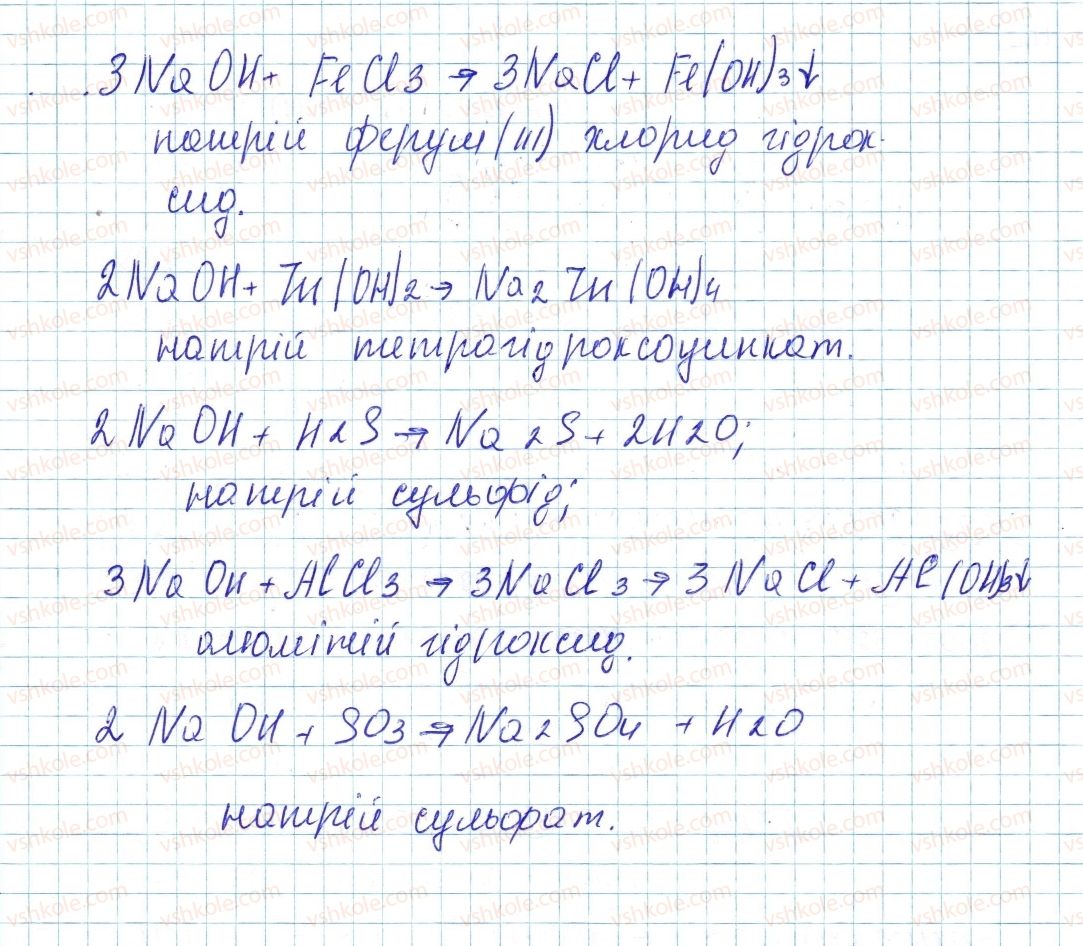 3NaOH + FeCl3 → 3NaCl + Fe(OH)3↓
натрій ферум (III) хлорид гідрок-
сид.
2NaOH + Zn(OH)2 → Na2Zn(OH)4
натрій тетрагідроксоцинкат.
2NaOH + H2S → Na2S + 2H2O;
натрій сульфід;
3NaOH + AlCl3 → 3NaCl3 → 3NaCl + Al(OH)3↓
алюміній гідроксид.
2NaOH + SO3 → Na2SO4 + H2O
натрій сульфат.